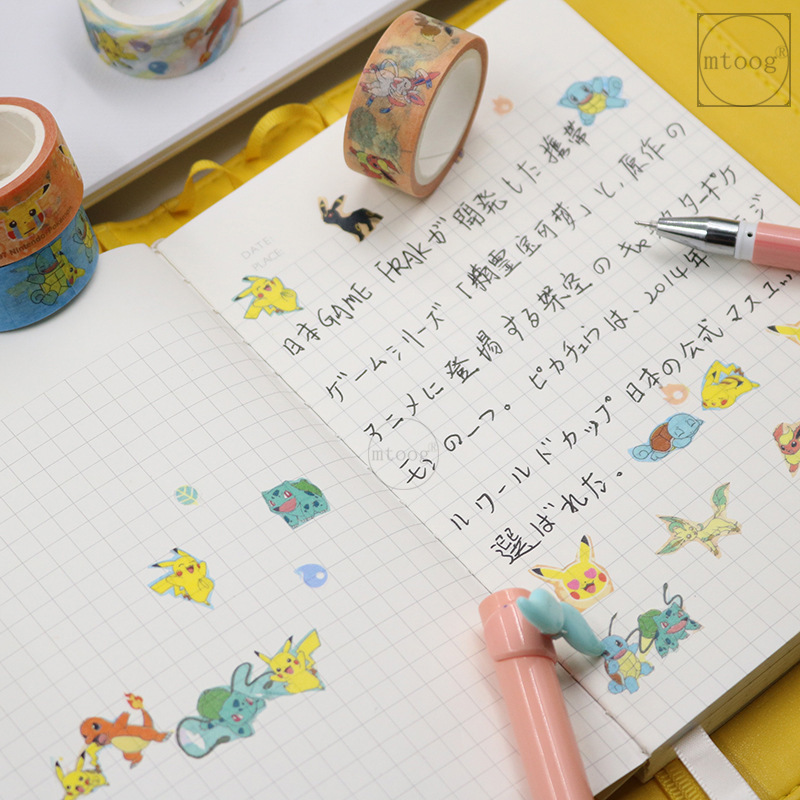 mtoog®
DATE:
PLACE:
日本GAME「RAKが開発した携帯
ゲームシリーズ「精霊宝可夢」と、原作の
アニメに登場する架空のキャラクターポケ
モンの一つ。ピカチュウは、2014年
ルワールドカップ日本の公式マスユッ
選ばれた。
mtoog®
Nintendo